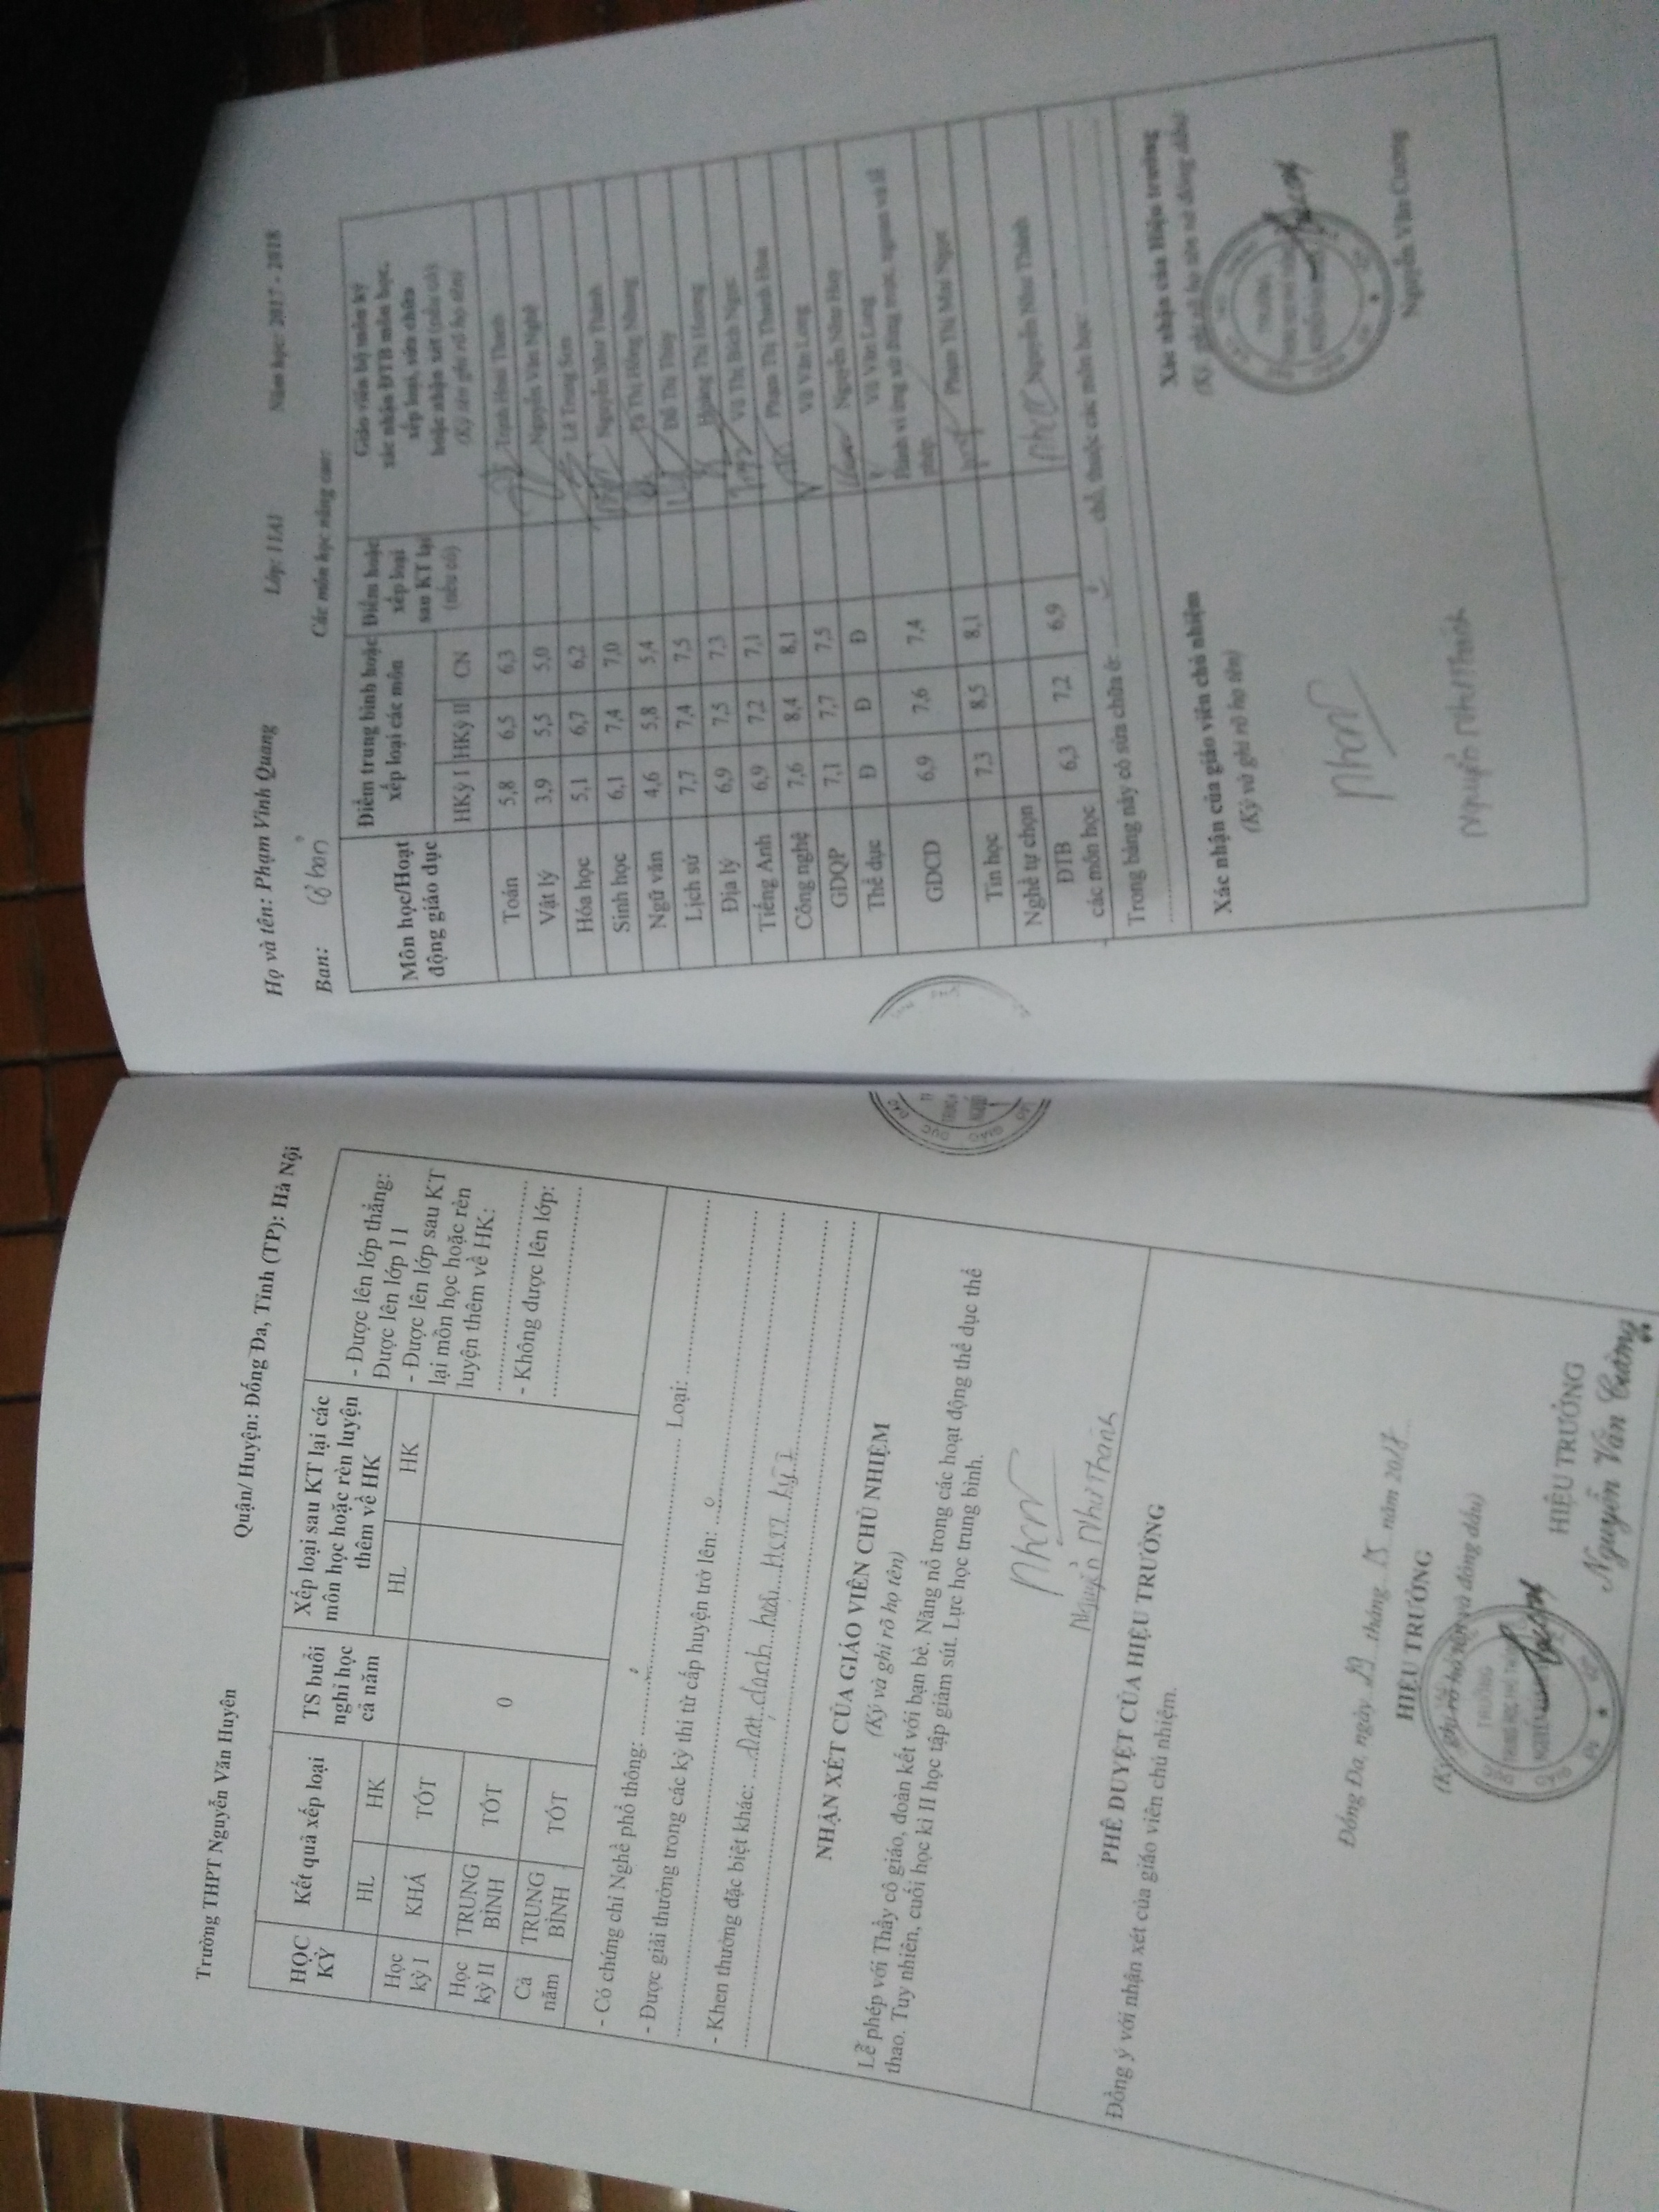 Trường THPT Nguyễn Văn Huyên
Quận/ Huyện: Đống Đa, Tỉnh (TP): Hà Nội
HỌC KỲ | Kết quả xếp loại | TS buổi nghỉ học cả năm | Xếp loại sau KT lại các môn học hoặc rèn luyện thêm về HK
HL HK HL HK
Học kỳ I KHÁ TỐT
Học kỳ II TRUNG BÌNH TỐT
Cả năm TRUNG BÌNH TỐT
0
- Được lên lớp thẳng:
Được lên lớp 11
- Được lên lớp sau KT
lại môn học hoặc rèn
luyện thêm về HK:
- Không được lên lớp:
- Có chứng chỉ Nghề phổ thông: Loại:
- Được giải thưởng trong các kỳ thi từ cấp huyện trở lên: 0
- Khen thưởng đặc biệt khác: Đạt danh hiệu HSTT kỳ I
NHẬN XÉT CỦA GIÁO VIÊN CHỦ NHIỆM
(Ký và ghi rõ họ tên)
Lễ phép với Thầy cô giáo, đoàn kết với bạn bè. Năng nổ trong các hoạt động thể dục thể
thao. Tuy nhiên, cuối học kì II học tập giảm sút. Lực học trung bình.
Nguyễn Như Thành
PHÊ DUYỆT CỦA HIỆU TRƯỞNG
Đồng ý với nhận xét của giáo viên chủ nhiệm.
Đống Đa, ngày 29 tháng năm 20
HIỆU TRƯỞNG
(Ký, ghi rõ họ tên và đóng dấu)
TRƯỜNG
TRUNG HỌC PHỔ THÔNG
HIỆU TRƯỞNG
Nguyễn Văn Cường
Họ và tên: Phạm Vinh Quang Lớp: 11A1 Năm học: 2017 - 2018
Ban: Cơ bản Các môn học nâng cao:
Môn học/Hoạt động giáo dục | Điểm trung bình hoặc xếp loại các môn | Điểm hoặc xếp loại sau KT lại (nếu có) | Giáo viên bộ môn ký xác nhận ĐTB môn học, xếp loại, sửa chữa hoặc nhận xét (nếu có) (Ký tên ghi rõ họ tên)
HKỳ I HKỳ II CN
Toán 5,8 6,5 6,3 Trịnh Hoài Thanh
Vật lý 3,9 5,5 5,0 Nguyễn Văn Nghệ
Hóa học 5,1 6,7 6,2 Lê Trung Sơn
Sinh học 6,1 7,4 7,0 Nguyễn Như Thành
Ngữ văn 4,6 5,8 5,4 Tạ Thị Hồng Nhung
Lịch sử 7,7 7,4 7,5 Đỗ Thị Thúy
Địa lý 6,9 7,5 7,3 Hoàng Thị Hương
Tiếng Anh 6,9 7,2 7,1 Vũ Thị Bích Ngọc
Công nghệ 7,6 8,4 8,1 Phạm Thị Thanh Hoa
GDQP 7,1 7,7 7,5 Vũ Văn Long
Thể dục Đ Đ Đ Nguyễn Như Huy
GDCD 6,9 7,6 7,4 Vũ Văn Long
Hành vi ứng xử đúng mực, ngoan và lễ phép.
Tin học 7,3 8,5 8,1 Phạm Thị Mai Ngọc
Nghề tự chọn
ĐTB các môn học 6,3 7,2 6,9 Nguyễn Như Thành
Trong bảng này có sửa chữa ở: chỗ, thuộc các môn học:
Xác nhận của giáo viên chủ nhiệm
(Ký và ghi rõ họ tên)
Nguyễn Như Thành
Xác nhận của Hiệu trưởng
(Ký, ghi rõ họ tên và đóng dấu)
TRƯỜNG
Nguyễn Văn Cường